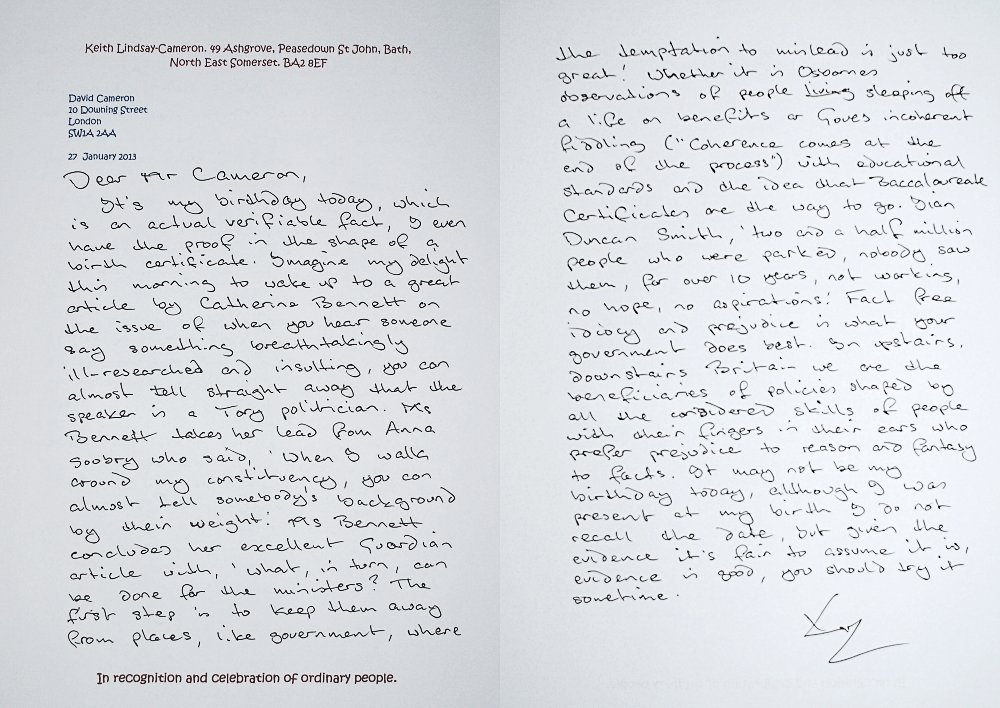 Keith Lindsay-Cameron. 49 Ashgrove, Peasedown St John, Bath,
North East Somerset. BA2 8EF
David Cameron
10 Downing Street
London
SW1A 2AA
27 January 2013
Dear Mr Cameron,
It's my birthday today, which
is an actual verifiable fact, I even
have the proof in the shape of a
birth certificate. Imagine my delight
this morning to wake up to a great
article by Catherine Bennett on
the issue of when you hear someone
say something breathtakingly
ill-researched and insulting, you can
almost tell straight away that the
speaker is a Tory politician. Ms
Bennett takes her lead from Anna
Soobry who said, 'When I walk
around my constituency, you can
almost tell somebody's background
by their weight! Ms Bennett
concludes her excellent Guardian
article with, 'What, in turn, can
be done for the ministers? The
first step is to keep them away
from places, like government, where
In recognition and celebration of ordinary people.
the temptation to mislead is just too
great! Whether it is Osbornes
observations of people living sleeping off
a life on benefits or Goves incoherent
fiddling ("Coherence comes at the
end of the process") with educational
standards and the idea that Baccalaureate
Certificates are the way to go. Iian
Duncan Smith, 'two and a half million
people who were parked, nobody saw
them, for over 10 years, not working,
no hope, no aspirations! Fact free
idiocy and prejudice is what your
government does best. In upstairs,
downstairs Britain we are the
beneficiaries of policies shaped by
all the considered skills of people
with their fingers in their ears who
prefer prejudice to reason and fantasy
to facts. It may not be my
birthday today, although I was
present at my birth I do not
recall the date, but given the
evidence it's fair to assume it is,
evidence is good, you should try it
sometime.